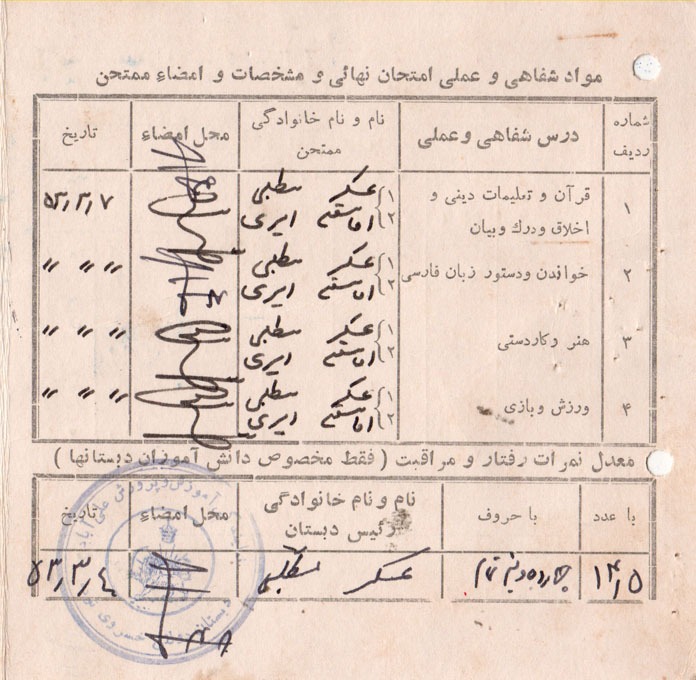 مواد شفاهی و عملی امتحان نهائی و مشخصات و امضاء ممتحن
شماره ردیف درس شفاهی و عملی نام و نام خانوادگی ممتحن محل امضاء تاریخ
۱ قرآن و تعلیمات دینی و اخلاق و درك و بیان ۱ عسکر ۲ ۵۳٫۳٫۷
۲ خواندن و دستور زبان فارسی ۱ عسکر ۲ 〃 〃 〃
۳ هنر و کاردستی ۱ عسکر ۲ 〃 〃 〃
۴ ورزش و بازی ۱ عسکر ۲ 〃 〃 〃
معدل نمرات رفتار و مراقبت ( فقط مخصوص دانش آموزان دبستانها )
با عدد با حروف نام و نام خانوادگی رئیس دبستان محل امضاء تاریخ
۱۴٫۵ چهارده و نیم تمام عسکر ۵۳٫۳٫۴
آموزش و پرورش علی آباد
دبستان